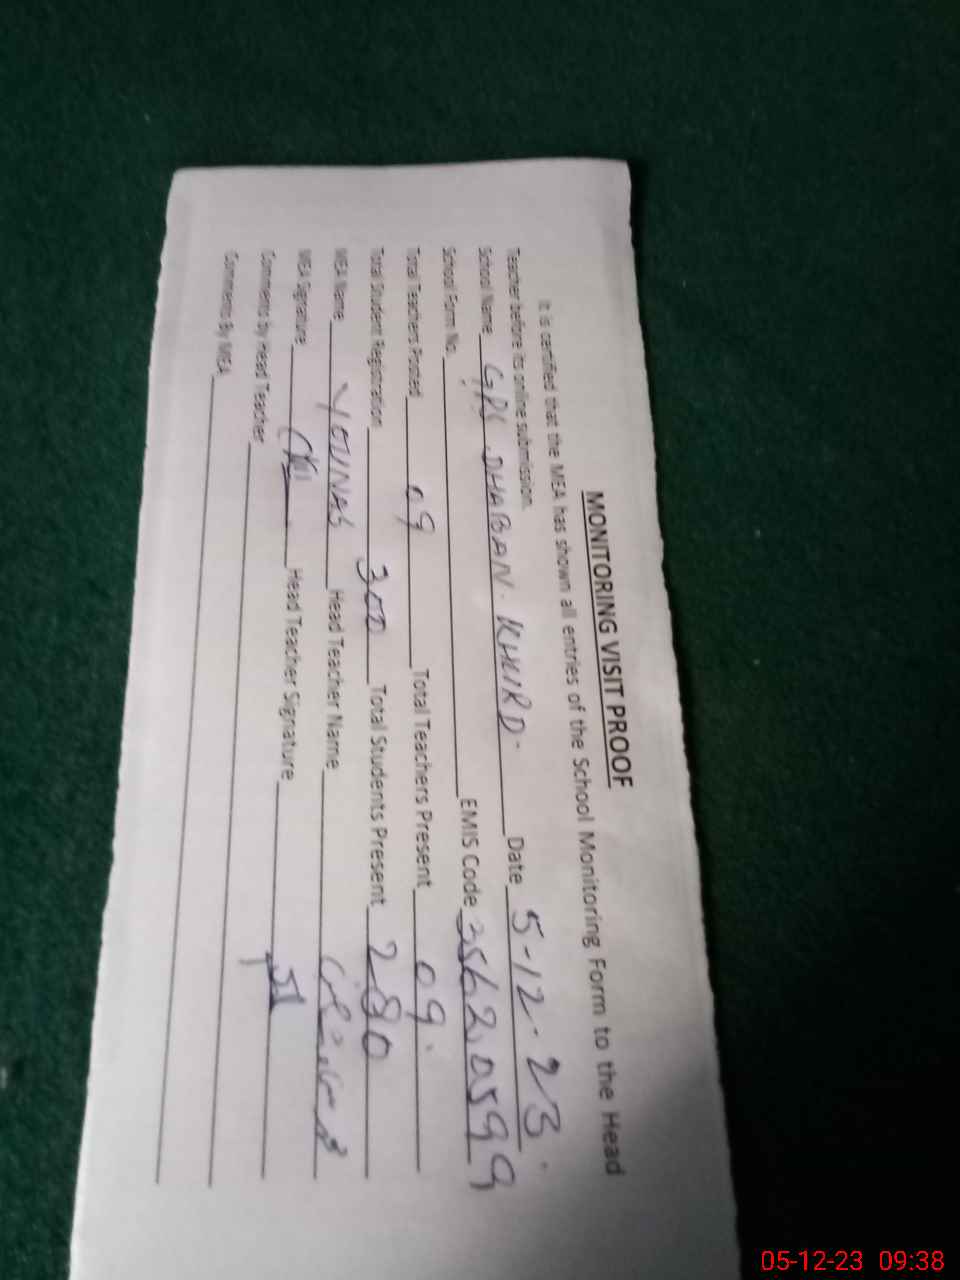 MONITORING VISIT PROOF
It is certified that the MEA has shown all entries of the School Monitoring Form to the Head
Teacher before its online submission.
School Name GPS DHABAN KHURD. Date 5-12-23.
School Form No. EMIS Code 35620599
Total Teachers Posted 09 Total Teachers Present 09.
Total Student Registration 300 Total Students Present 280
MEA Name YOUNAS Head Teacher Name
MEA Signature Head Teacher Signature
Comments by Head Teacher
Comments By MEA
05-12-23 09:38